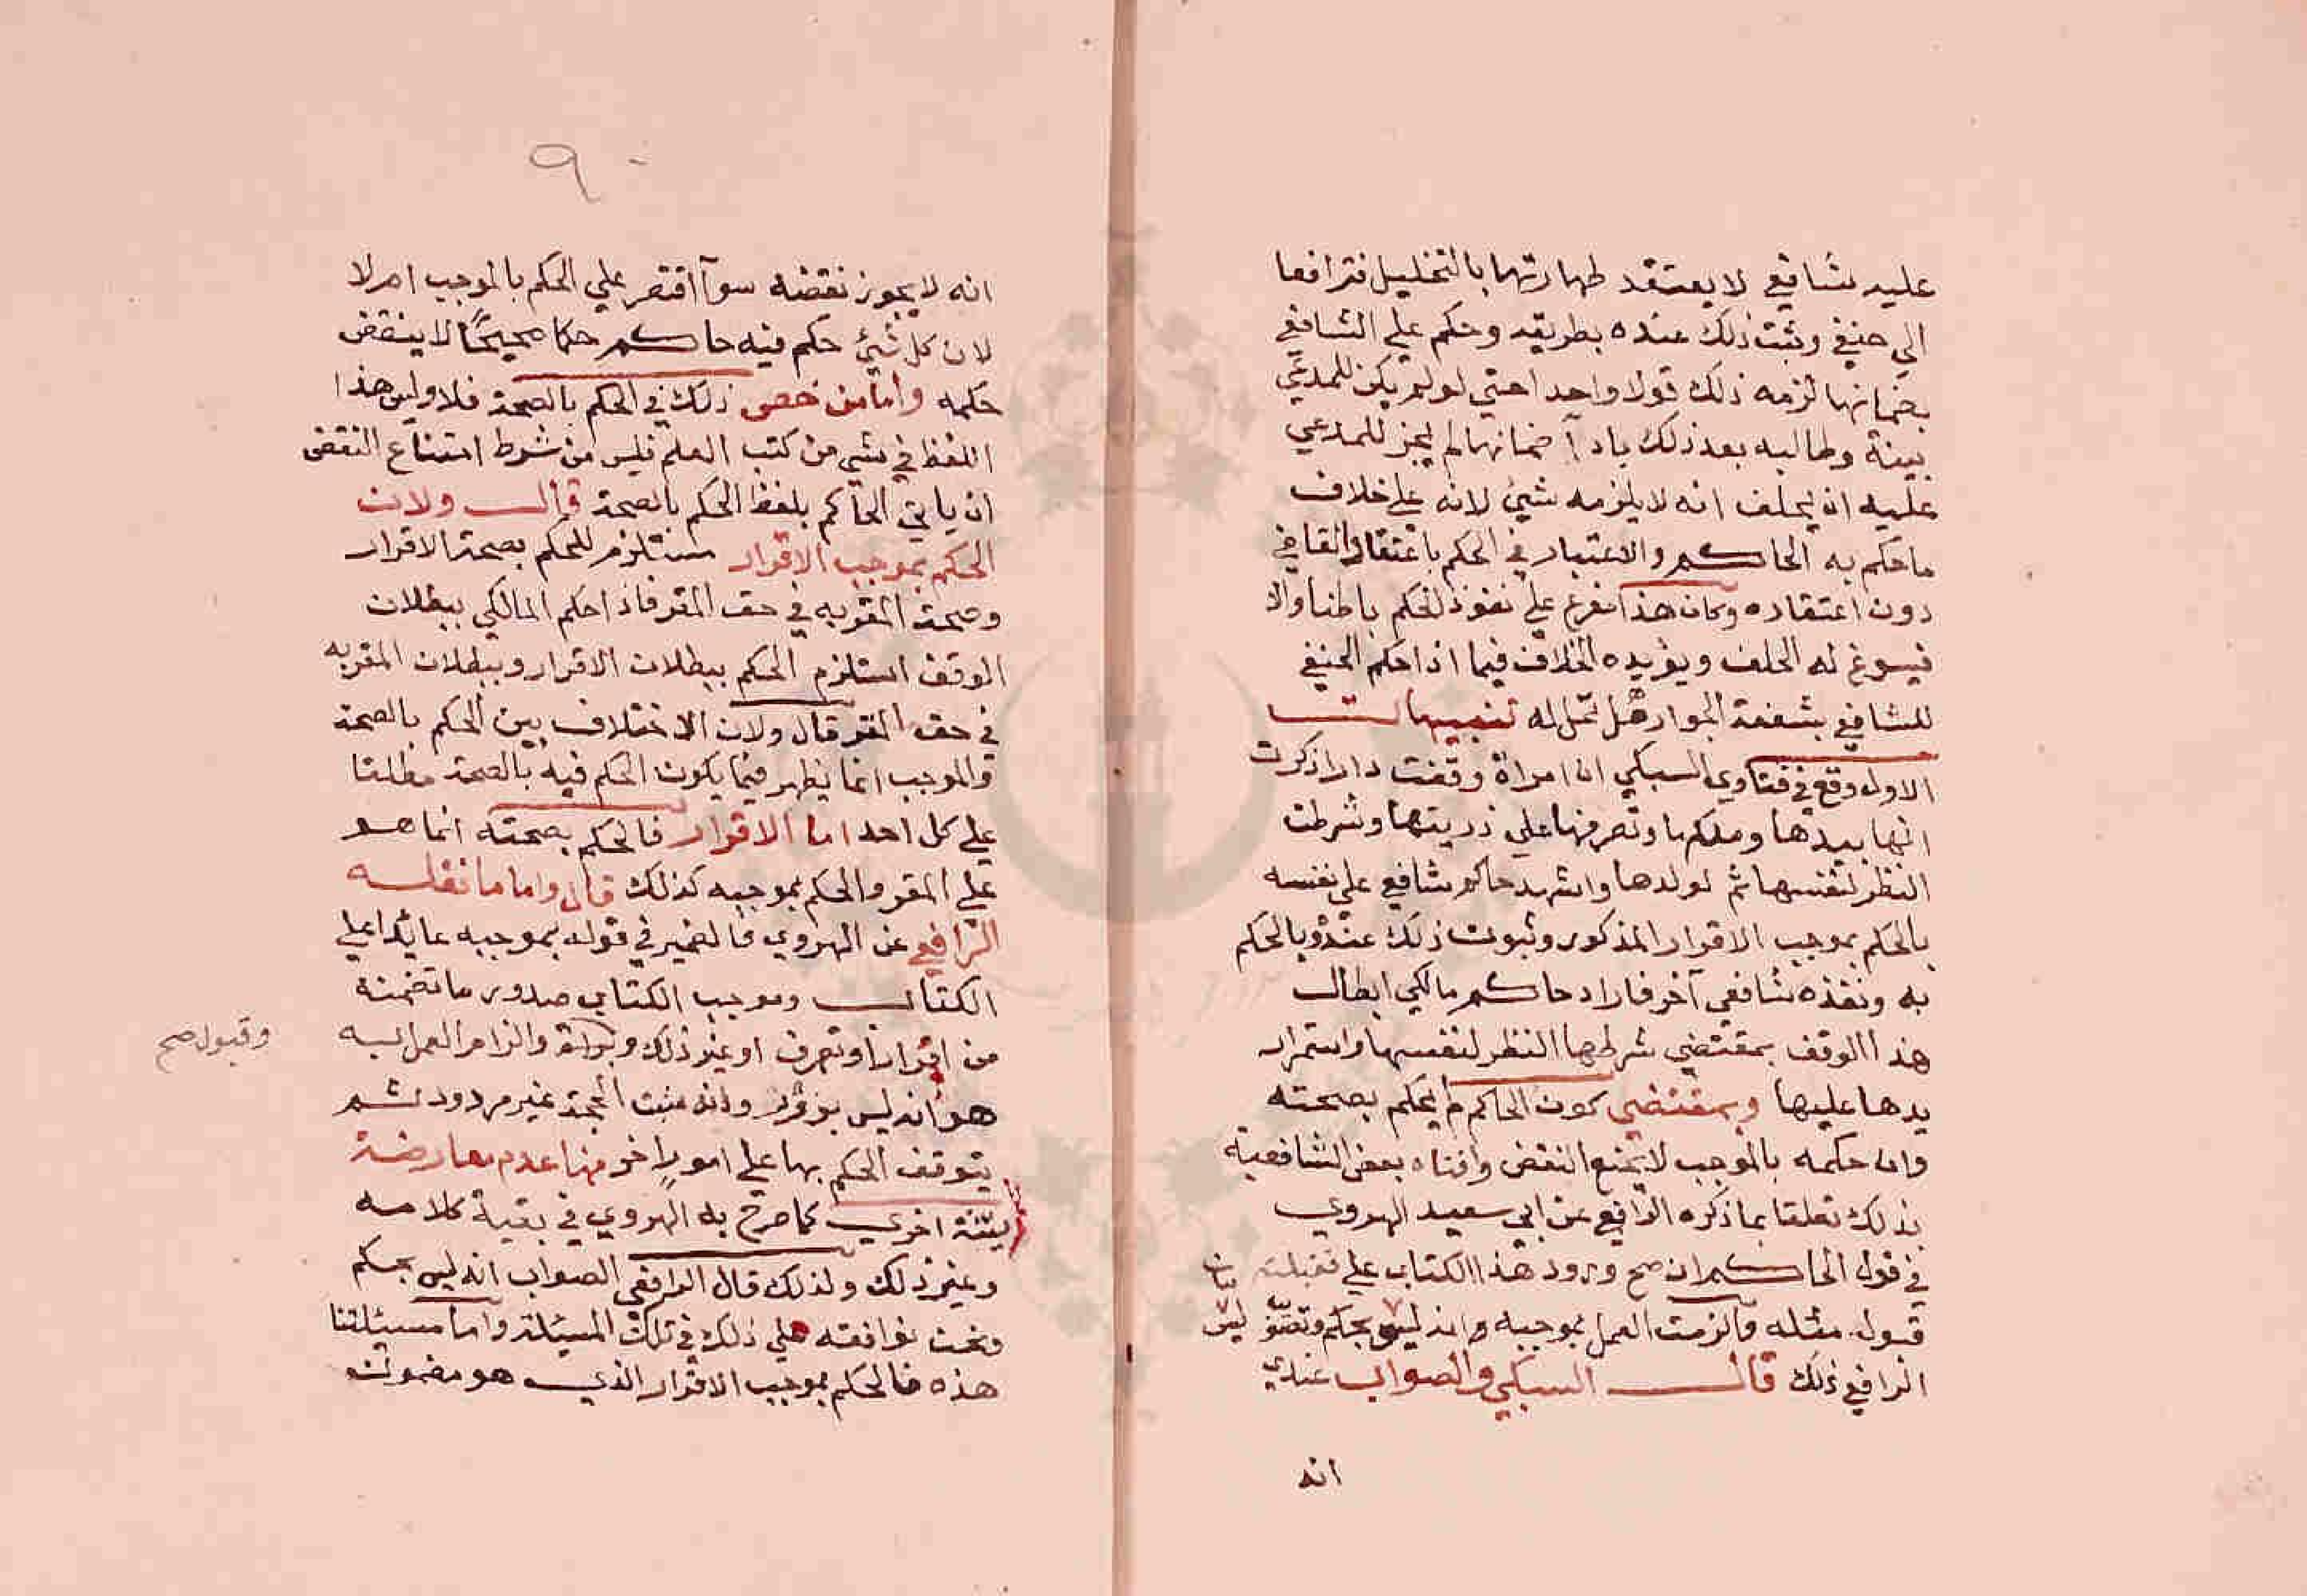 عليه شافعي لا يعتقد طهارتها بالتخليل فترافعا
الى حنفي وثبت ذلك عنده بطريقه وحكم علي الشافعي
بضمانها لزمه ذلك قولا واحدا حتي لو لم يكن للمدعي
بينة وطالبه بعد ذلك باداء ضمانها لم يجز للمدعي
عليه ان يحلف انه لا يلزمه شيئ لانه علي خلاف
ما حكم به الحاكم والاعتبار في الحكم باعتقاد القاضي
دون اعتقاده وكان هذا مفرع علي نفوذ الحكم باطنا والا
فيسوغ له الحلف ويؤيده الخلاف فيما اذا حكم الحنفي
للشافعي بشفعة الجوار هل تحل له تنبيهات
الاول وقع في فتاوي السبكي ان امراة وقفت دارا ذكرت
انها بيدها وملكها وتصرفها علي ذريتها وشرطت
النظر لنفسها ثم لولدها واشهد حاكم شافعي علي نفسه
بالحكم بموجب الاقرار المذكور وثبوت ذلك عنده وبالحكم
به ونفذه شافعي آخر فاراد حاكم مالكي ابطال
هذا الوقف بمقتضي شرطها النظر لنفسها واستمرار
يدها عليها وبمقتضي كون الحاكم لم يحكم بصحته
وان حكمه بالموجب لا يمنع النقض وافتاه بعض الشافعية
بذلك تعلقا بما ذكره الرافعي عن ابي سعيد الهروي
في قول الحاكم ان صح ورود هذا الكتاب علي فقبلته
قبول مثله والزمت العمل بموجبه وانه ليس بحكم وتصو
الرافعي ذلك قال السبكي والصواب عندي
انه
٩
انه لا يجوز نقضه سوآ اقتصر علي الحكم بالموجب ام لا
لان كل شيئ حكم فيه حاكم حكما صحيحًا لا ينقض
حكمه واما من خصص ذلك في الحكم بالصحة فلا وليس هذا
اللفظ في شي من كتب العلم فليس من شرط امتناع النقض
ان ياتي الحاكم بلفظ الحكم بالصحة قال ولان
الحكم بموجب الاقرار مستلزم للحكم بصحة الاقرار
وصحة المقر به في حق المقر فاذا حكم المالكي ببطلان
الوقف استلزم الحكم ببطلان الاقرار وببطلان المقر به
في حق المقر قال ولان الاختلاف بين الحكم بالصحة
والموجب انما يظهر فيما يكون الحكم فيه بالصحة مطلقا
علي كل احد اما الاقرار فالحكم بصحته انما هو
علي المقر والحكم بموجبه كذلك قال واما ما نقله
الرافعي عن الهروي فالضمير في قوله بموجبه عايدا علي
الكتاب وموجب الكتاب صدور ما تضمنه
من اقرار او تصرف او غير ذلك والزام العمل به
وقبول صح
هو انه ليس بزور وانه مثبت الحجة غير مردود ثم
يتوقف الحكم بها علي امور اخر منها عدم معارضة
بيّنة اخري كما صرح به الهروي في بقية كلامه
وغير ذلك ولذلك قال الرافعي الصواب انه ليس بحكم
ونحن نوافقه علي ذلك في تلك المسئلة واما مسئلتنا
هذه فالحكم بموجب الاقرار الذي هو مضمون